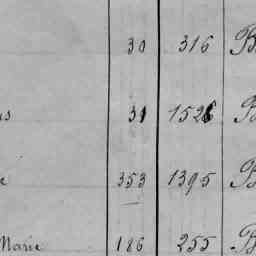 30 316 B
s 31 1526 B
e 353 1395 B
Marie 186 255 B